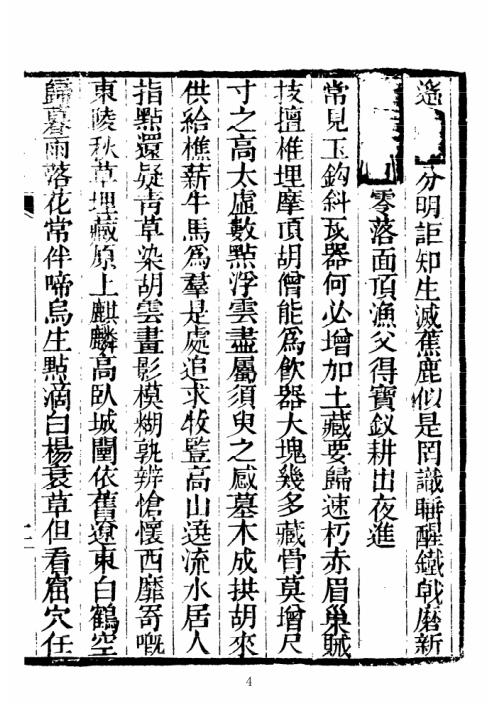 遥 分明詎知生滅蕉鹿似是罔識睡醒鐵戟磨新
零落面頂漁父得寶釵耕出夜進
常見玉鈎斜瓦器何必增加土藏要歸速朽赤眉巢賊
技擅椎埋摩頂胡僧能爲飲器大塊幾多藏骨莫增尺
寸之高太虛數點浮雲盡屬須臾之感墓木成拱胡來
供給樵薪牛馬爲羣是處追求牧豎高山遶流水居人
指點還疑靑草染胡雲畫影模煳孰辨愴懷西靡寄嘅
東陵秋草埋藏原上麒麟高臥城闉依舊遼東白鶴空
歸暮雨落花常伴啼烏生點滴白楊衰草但看窟穴任
4